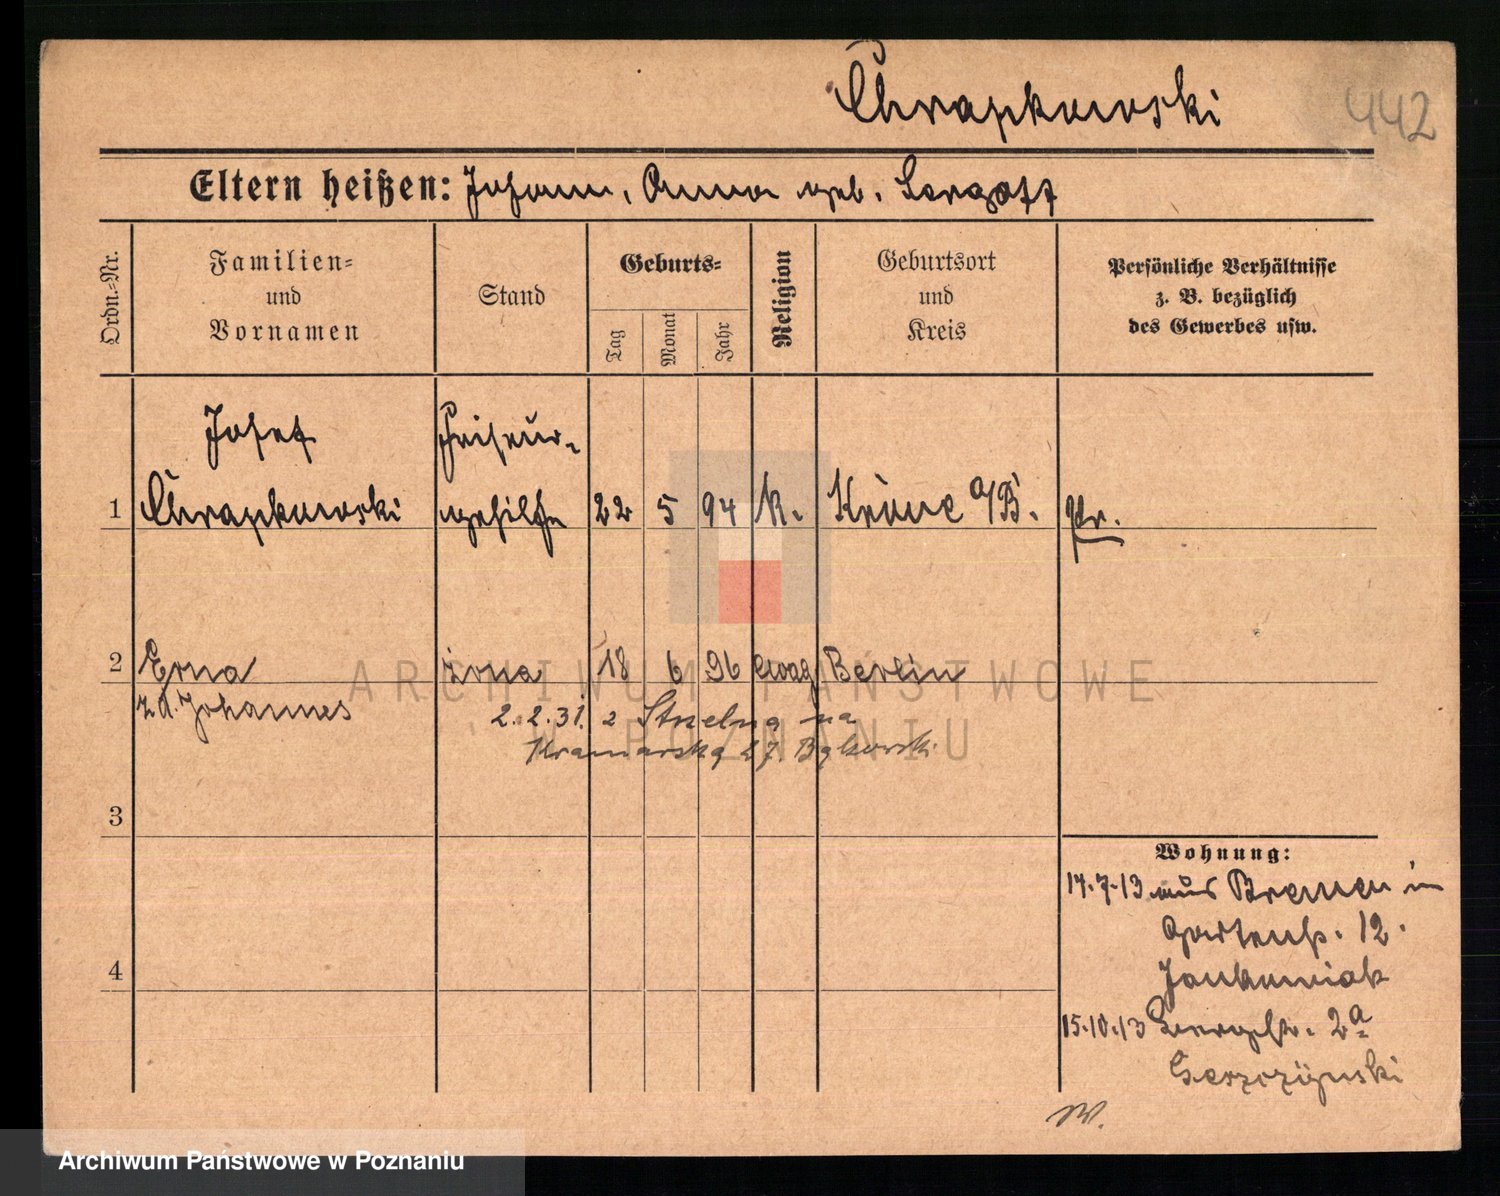 Chrapkowski
442
Eltern heißen: Johann, Anna geb.
Ordn.-Nr.
Familien=
und
Vornamen
Stand
Geburts=
Tag
Monat
Jahr
Religion
Geburtsort
und
Kreis
Persönliche Verhältnisse
z. B. bezüglich
des Gewerbes usw.
Josef
Friseur-
1 Chrapkowski gehilfe 22 5 94 k. Krone a/B. Pr.
2 Erna żona 18 6 96 ewag Berlin
z d. Johannes
2.2.31. z Strzelna na
Kramarska 27. Bąkowski
3
4
Wohnung:
14.7.13 aus Bremen in
Gartenstr. 12.
Jankowiak
15.10.13 Bergstr. 2a
ARCHIWUM PAŃSTWOWE
W POZNANIU
Archiwum Państwowe w Poznaniu